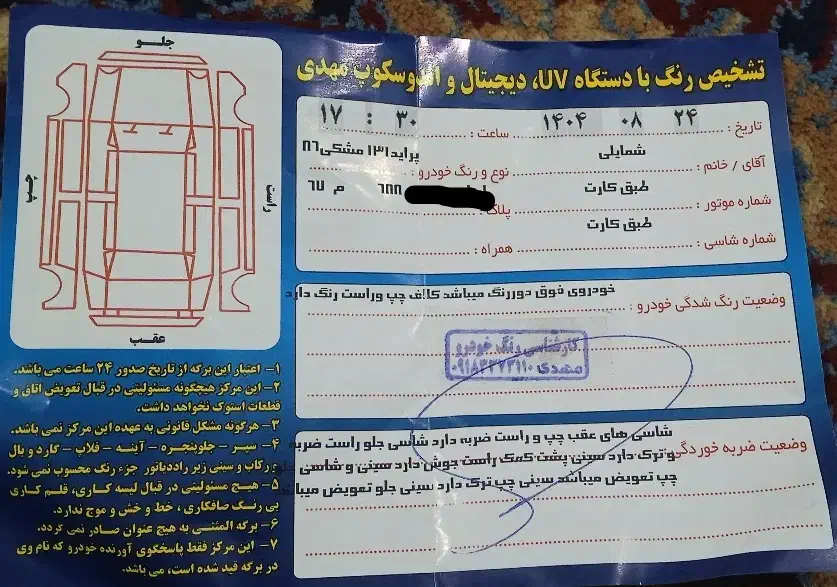 تشخیص رنگ با دستگاه UV، دیجیتال و آندوسکوپ مهدی
جلو
چپ
راست
عقب
تاریخ : ۲۴ ۰۸ ۱۴۰۴ ساعت : ۳۰ : ۱۷
آقای / خانم : شمایلی نوع و رنگ خودرو : پراید۱۳۱ مشکی۸۶
شماره موتور : طبق کارت پلاک : ۶۸۸ م ۶۷
شماره شاسی : طبق کارت همراه :
وضعیت رنگ شدگی خودرو : خودروی فوق دوررنگ میباشد کالاف چپ وراست رنگ دارد
کارشناسی رنگ خودرو
مهدی ۰۹۱۸۳۳۷۳۱۱۰
وضعیت ضربه خوردگی
شاسی های عقب چپ و راست ضربه دارد شاسی جلو راست ضربه
و ترک دارد سینی پشت کمک راست جوش دارد سینی و شاسی جلو
چپ تعویض میباشد سینی چپ ترک دارد سینی جلو تعویض میباشد
۱- اعتبار این برگه از تاریخ صدور ۲۴ ساعت می باشد.
۲- این مرکز هیچگونه مسئولیتی در قبال تعویض اتاق و
قطعات استوک نخواهد داشت.
۳- هرگونه مشکل قانونی به عهده این مرکز نمی باشد.
۴- سپر - جلوپنجره - آینه - فلاپ - کارد و بال
و رکاب و سینی زیر رادیاتور جزء رنگ محسوب نمی شود.
۵- هیچ مسئولیتی در قبال لیسه کاری، قلم کاری
بی رنگ صافکاری ، خط و خش و موج ندارد.
۶- برگه المثنی به هیچ عنوان صادر نمی گردد.
۷- این مرکز فقط پاسخگوی آورنده خودرو که نام وی
در برگه قید شده است، می باشد.